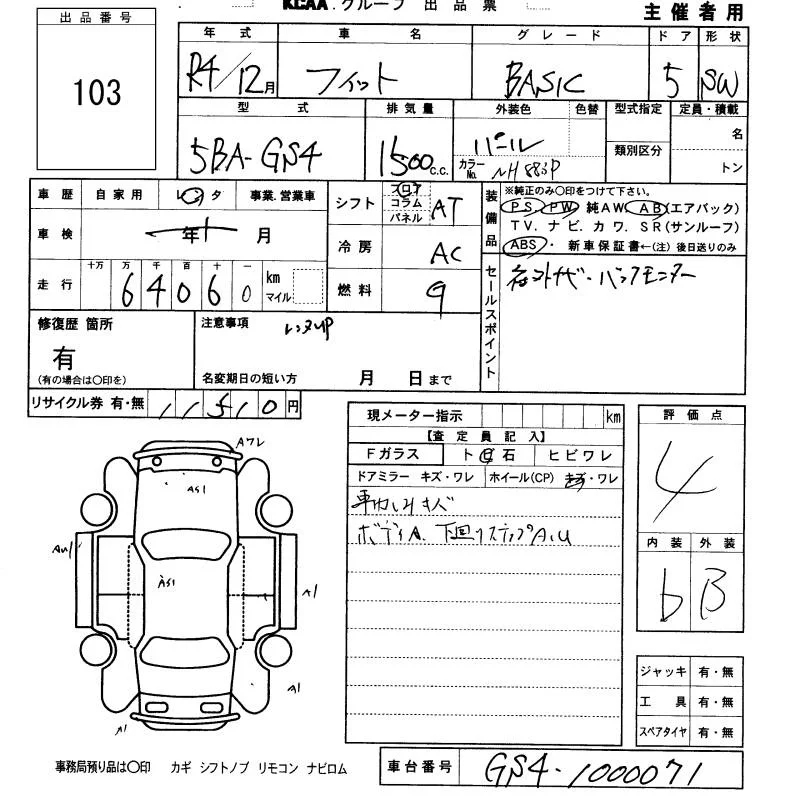 KCAA.グループ 出品票
主催者用
出品番号
103
年式 車名 グレード ドア 形状
R4/12月 フィット BASIC 5 SW
型式 排気量 外装色 色替 型式指定 定員・積載
5BA-GS4 1500c.c. パール 名
カラーNo. NH883P 類別区分 トン
車歴 自家用 レンタ 事業.営業車
シフト フロア コラム パネル AT
装備品
※純正のみ〇印をつけて下さい。
PS PW 純AW AB(エアバック)
TV. ナビ. カワ. SR(サンルーフ)
ABS・新車保証書←(注) 後日送りのみ
車検 年 月
冷房 AC
走行 十万 万 千 百 十 一
64060 km マイル
燃料 g
セールスポイント
社外ナビ・バックモニター
修復歴 箇所
有
(有の場合は〇印を)
注意事項 レンタUP
名変期日の短い方 月 日まで
リサイクル券 有・無 11510円
現メーター指示 km
【査定員記入】
Fガラス ト石 ヒビワレ
ドアミラー キズ・ワレ ホイール(CP) キズ・ワレ
車内シミキズ
ボディA. 下回リステップA.U
評価点
4
内装 外装
b B
Aワレ
AS1
AU1
AS1
A1
A1
A1
ジャッキ 有・無
工具 有・無
スペアタイヤ 有・無
事務局預り品は〇印 カギ シフトノブ リモコン ナビロム
車台番号 GS4-1000071